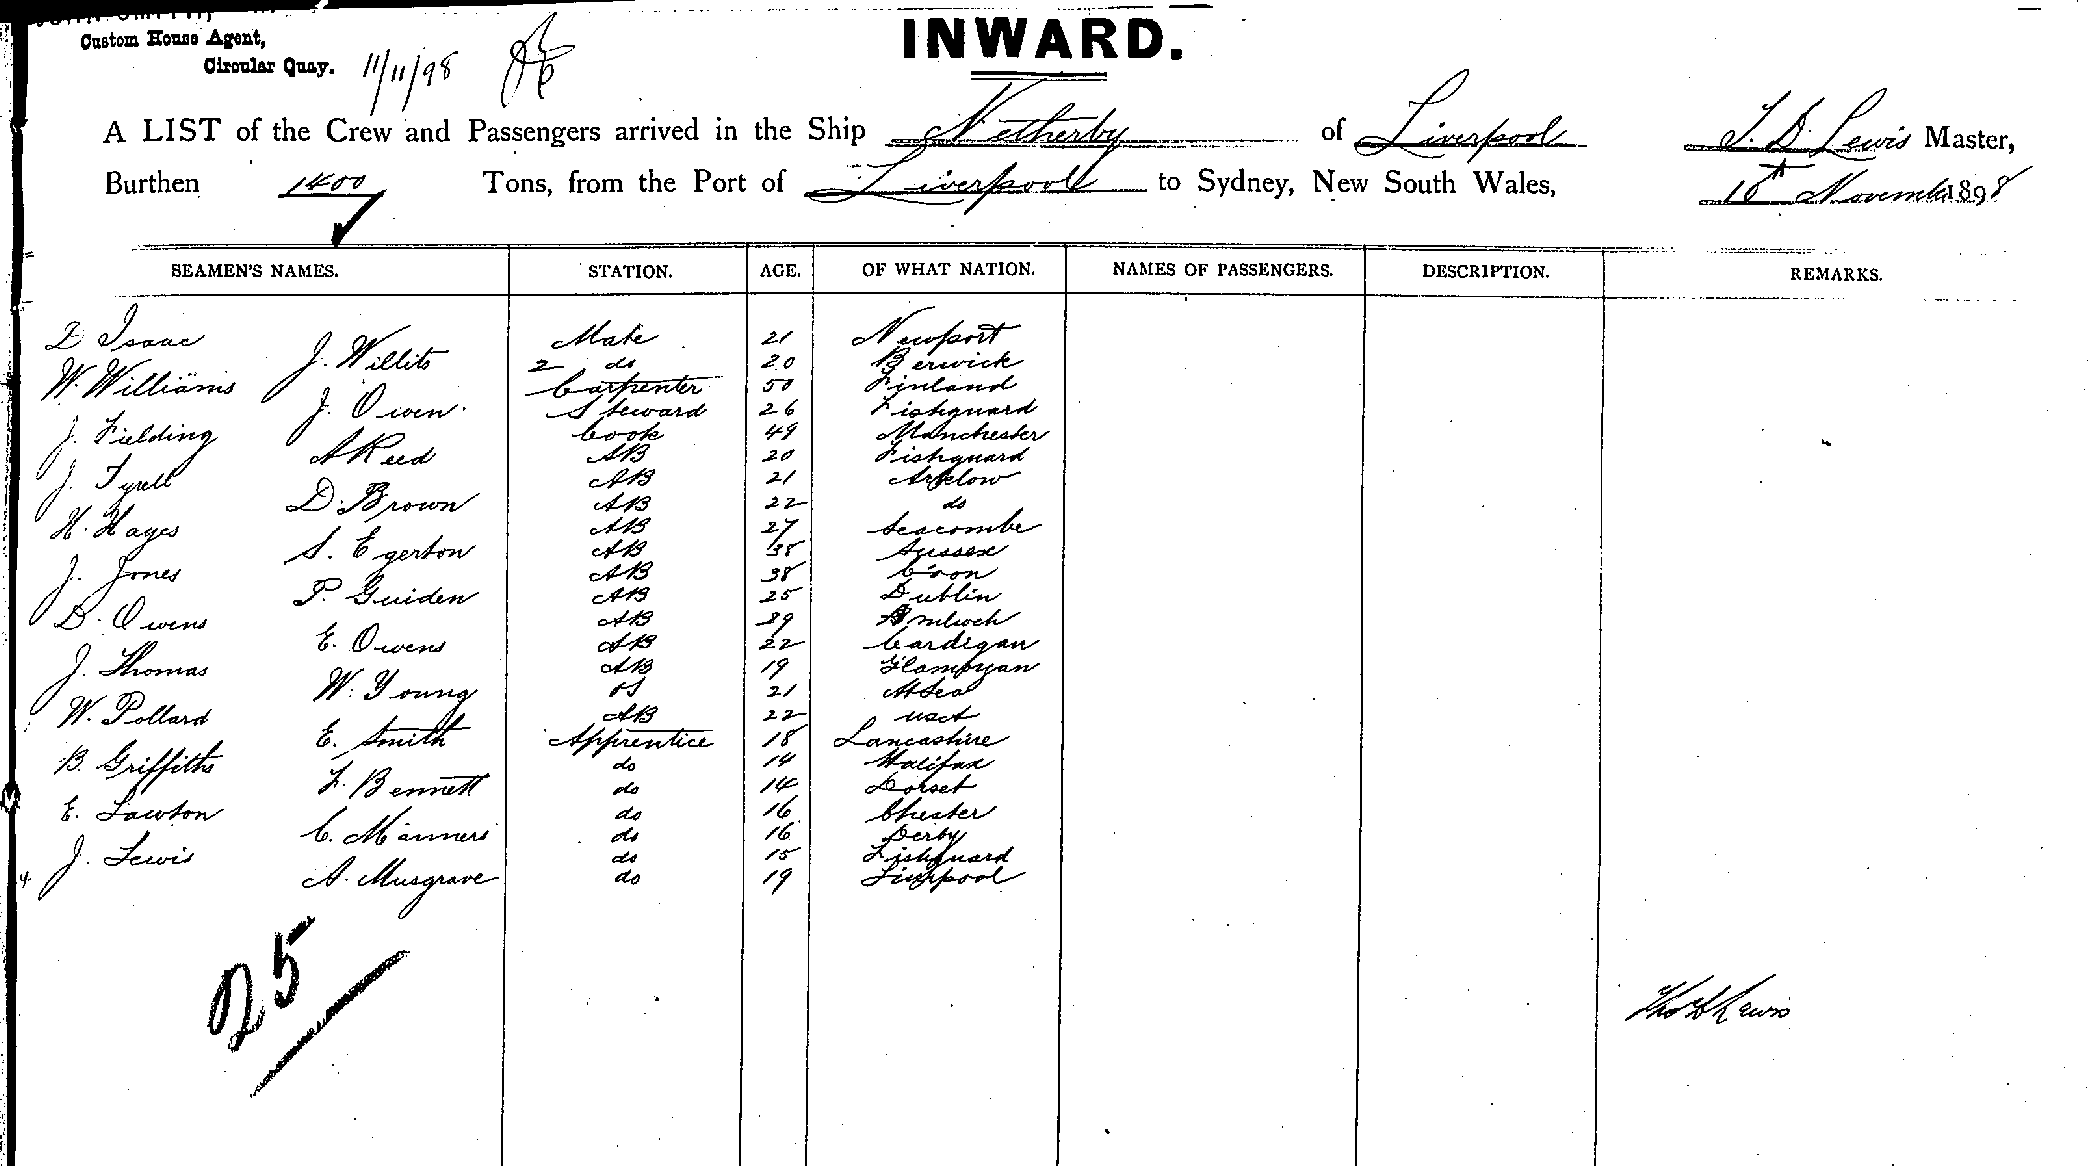 JOHN SMITH,
Custom House Agent,
Circular Quay. 11/11/98
INWARD.
A LIST of the Crew and Passengers arrived in the Ship Netherby of Liverpool T. D. Lewis Master,
Burthen 1400 Tons, from the Port of Liverpool to Sydney, New South Wales, 10th November 1898
SEAMEN'S NAMES. STATION. AGE. OF WHAT NATION. NAMES OF PASSENGERS. DESCRIPTION. REMARKS.
D Isaac Mate 21 Newport
J. Willits 2 do 20 Berwick
W. Williams Carpenter 50 Finland
J. Owen. Steward 26 Fishguard
J. Fielding Cook 49 Manchester
A Reed AB 20 Fishguard
J. Tyrell AB 21 Arklow
D. Brown AB 22 do
H. Hayes AB 27 Seacombe
S. Egerton AB 38 Sussex
J. Jones AB 38 C'von
P. Guiden AB 25 Dublin
D. Owens AB 39 Amlwch
E. Owens AB 22 Cardigan
J. Thomas AB 19
W. Young OS 21 At Sea
W. Pollard AB 22
E. Smith Apprentice 18 Lancashire
B. Griffiths do 14 Halifax
F. Bennett do 14 Dorset
E. Lawton do 16 Chester
C. Manners do 16 Derby
J. Lewis do 15 Fishguard
A. Musgrave do 19 Liverpool
25
Thos D Lewis